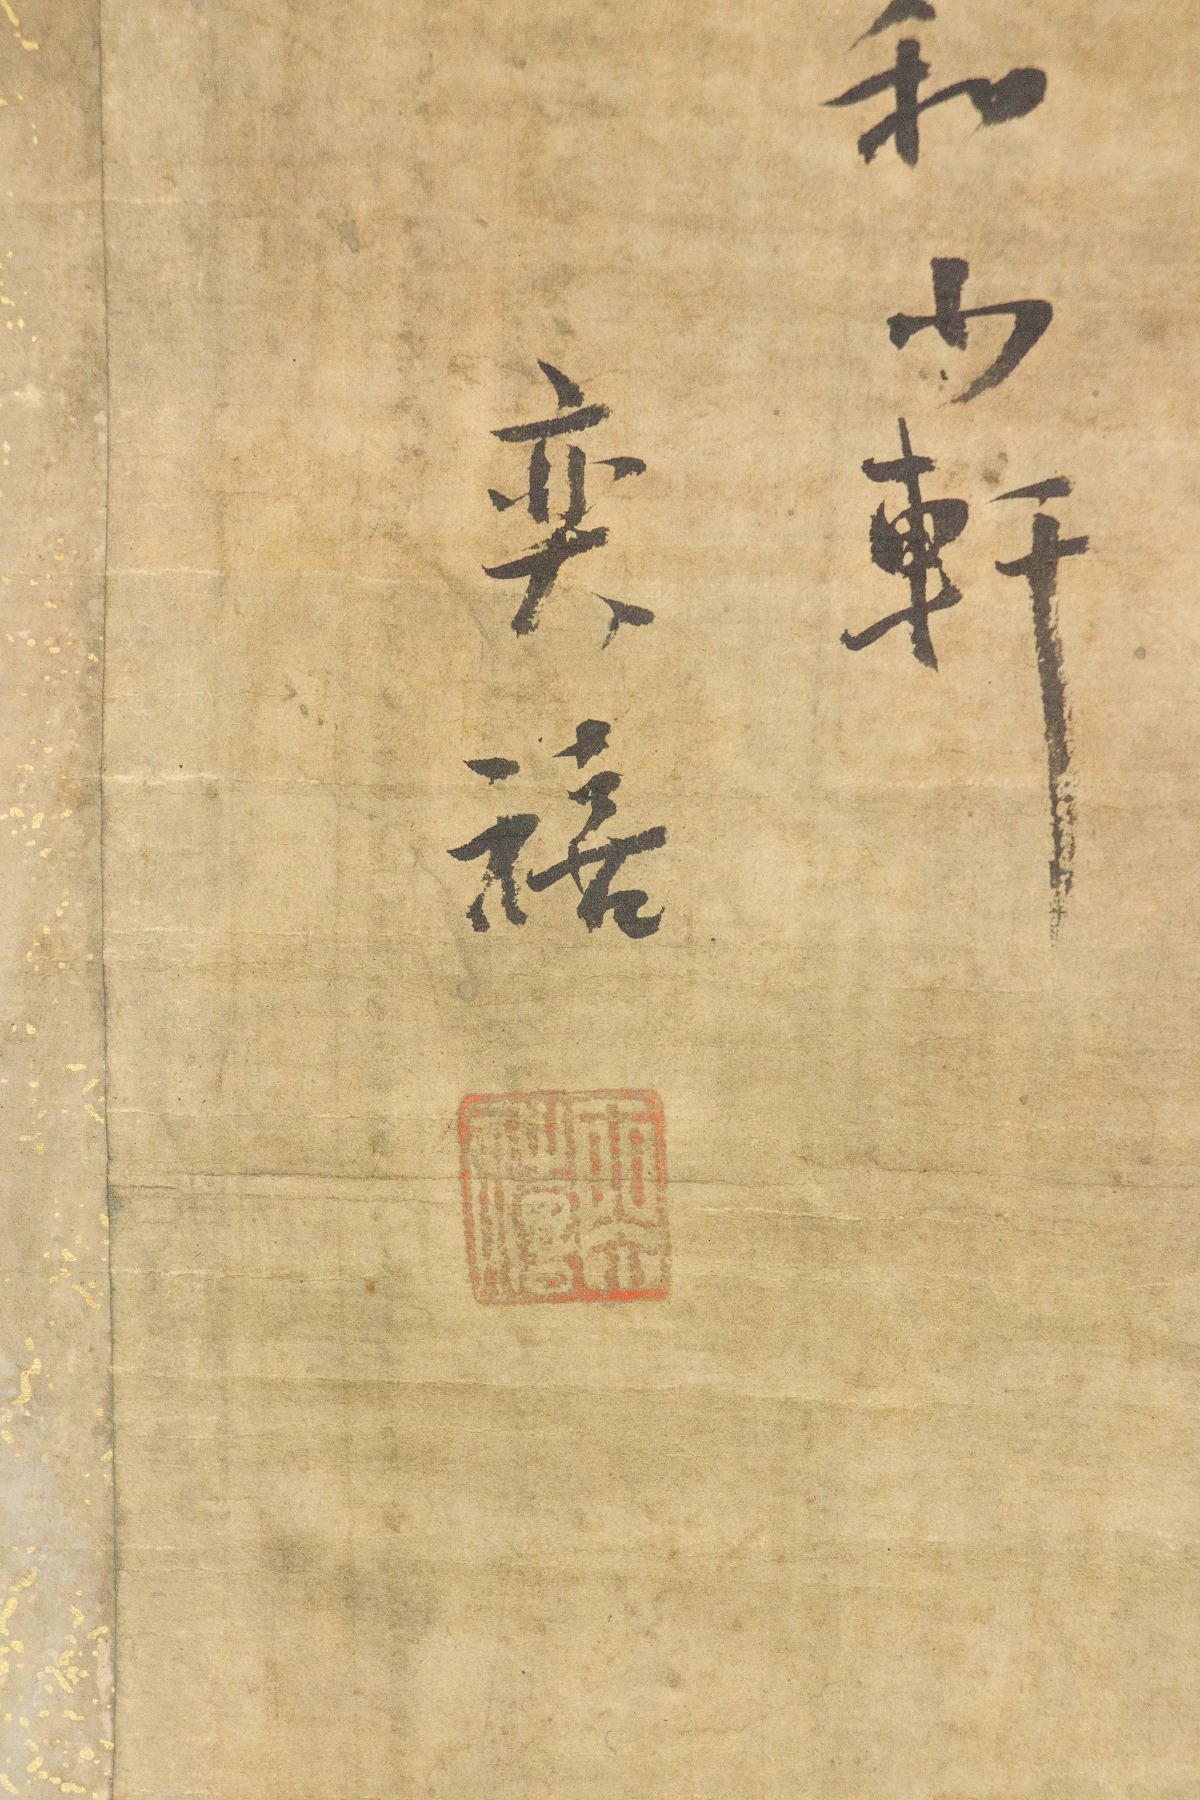 和小軒
奕禧